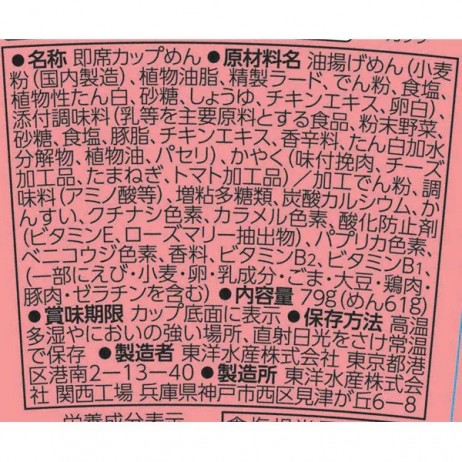 ●名称 即席カップめん ●原材料名 油揚げめん(小麦
粉(国内製造)、植物油脂、精製ラード、でん粉、食塩、
植物性たん白、砂糖、しょうゆ、チキンエキス、卵白)、
添付調味料(乳等を主要原料とする食品、粉末野菜、
砂糖、食塩、豚脂、チキンエキス、香辛料、たん白加水
分解物、植物油、パセリ)、かやく(味付挽肉、チーズ
加工品、たまねぎ、トマト加工品)/加工でん粉、調
味料(アミノ酸等)、増粘多糖類、炭酸カルシウム、か
んすい、クチナシ色素、カラメル色素、酸化防止剤
(ビタミンE、ローズマリー抽出物)、パプリカ色素、
ベニコウジ色素、香料、ビタミンB2、ビタミンB1、
(一部にえび・小麦・卵・乳成分・ごま・大豆・鶏肉・
豚肉・ゼラチンを含む) ●内容量 79g(めん61g)
●賞味期限 カップ底面に表示 ●保存方法 高温
多湿やにおいの強い場所、直射日光をさけ常温
で保存 ●製造者 東洋水産株式会社 東京都港
区港南2-13-40 ●製造所 東洋水産株式会
社 関西工場 兵庫県神戸市西区見津が丘6-8
栄養成分表示